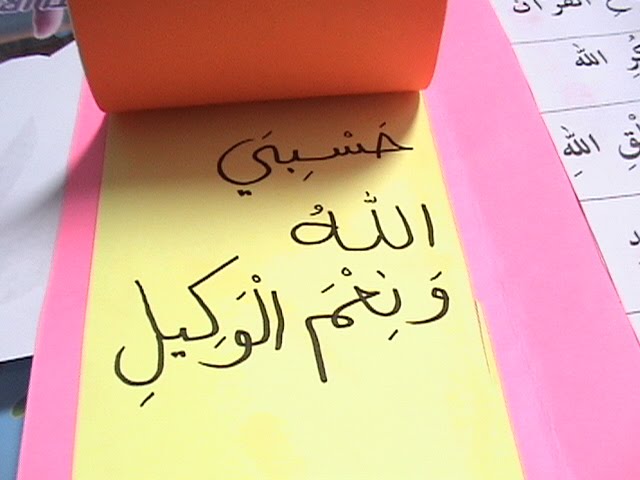 حَسْبِيَ
اللّٰهُ
وَنِعْمَ الْوَكِيلِ
القرآن
الله
اللهِ